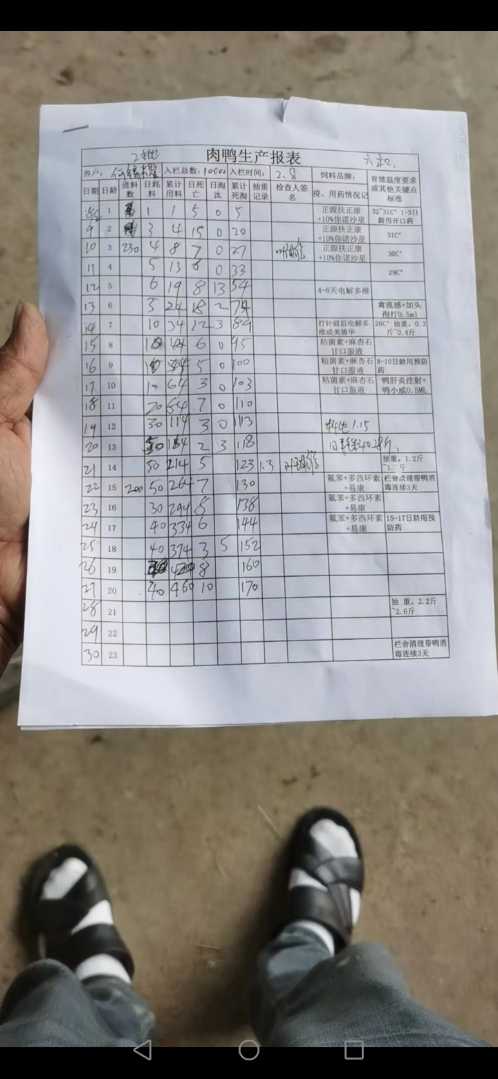 肉鸭生产报表
入栏总数: 入栏时间: 2.8 饲料品牌: 六和
日期 日龄 进料数 日耗料 累计用料 日死亡 日淘汰 累计死淘 抽重记录 检查人签名 疫、用药情况记 育雏温度要求或其他关键点标准
1 1 1 5 0 5 正源扶正康+10%你诺沙星
9 2 3 4 15 0 20 正源扶正康+10%你诺沙星 31C°
10 3 230 4 8 7 0 27 正源扶正康+10%你诺沙星 30C°
11 4 5 13 6 0 33 29C°
12 5 6 19 8 13 54 4-6天电解多维
13 6 5 24 18 2 74
14 7 10 34 12 3 89
15 8 44 6 0 95 粘菌素+麻杏石甘口服液
16 9 5 0 100 粘菌素+麻杏石甘口服液 8-10日龄用预防药
17 10 10 64 3 0 103 粘菌素+麻杏石甘口服液
18 11 20 84 7 0 110
19 12 30 114 3 0 113 1.15
20 13 50 164 2 3 118
21 14 50 214 5 123 1.3 抽重，1.2斤
22 15 200 50 264 7 130 氟苯+多西环素+易康 栏舍清理带鸭消毒连续3天
23 16 30 294 8 138 氟苯+多西环素+易康
24 17 40 334 6 144 氟苯+多西环素+易康 15-17日龄用预防药
25 18 40 374 3 5 152
26 19 420 8 160
27 20 40 460 10 170
28 21 抽 重，2.2斤~2.6斤
29 22
30 23 栏舍清理带鸭消毒连续3天